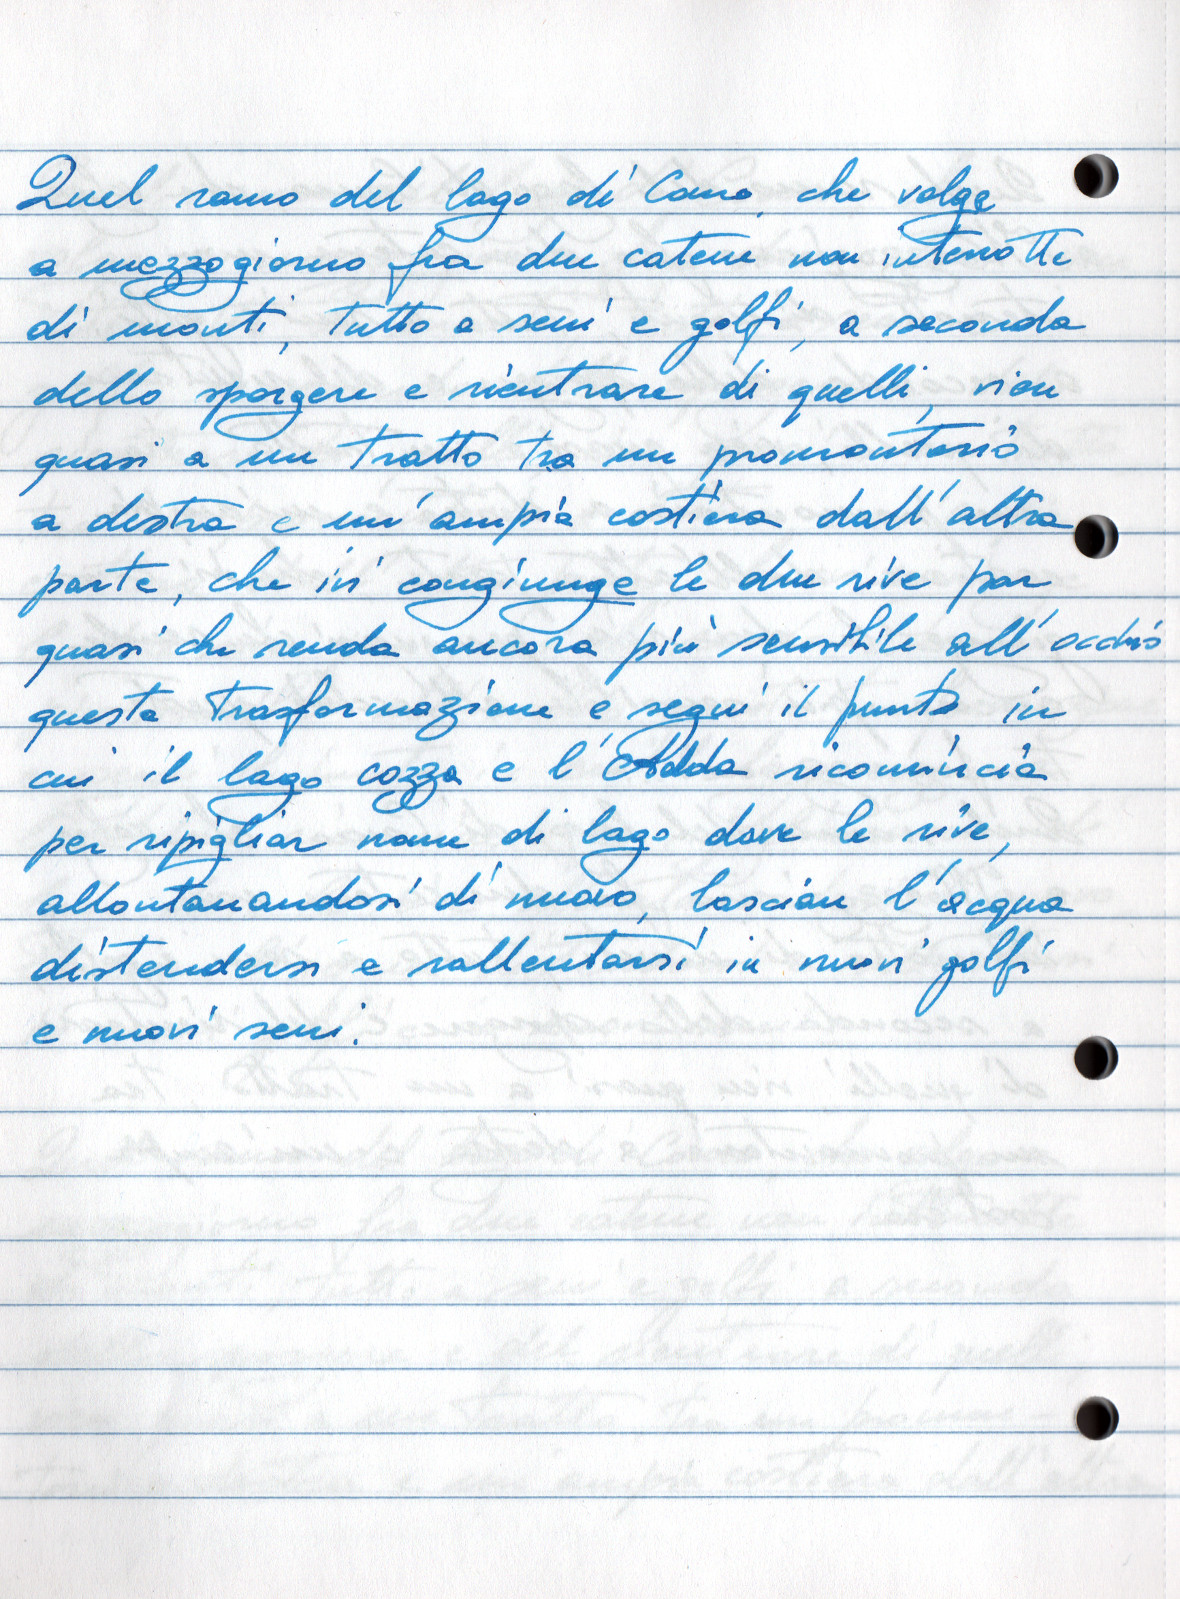 Quel ramo del lago di Como, che volge
a mezzogiorno fra due catene non interrotte
di monti, tutto a seni e golfi, a seconda
dello sporgere e rientrare di quelli, vien
quasi a un tratto tra un promontorio
a destra e un'ampia costiera dall'altra
parte, che ivi congiunge le due rive par
quasi che renda ancora più sensibile all'occhio
questa trasformazione e segni il punto in
cui il lago cozza e l'Adda ricomincia
per ripigliar nome di lago dove le rive,
allontanandosi di nuovo, lascian l'acqua
distendersi e rallentarsi in nuovi golfi
e nuovi seni.